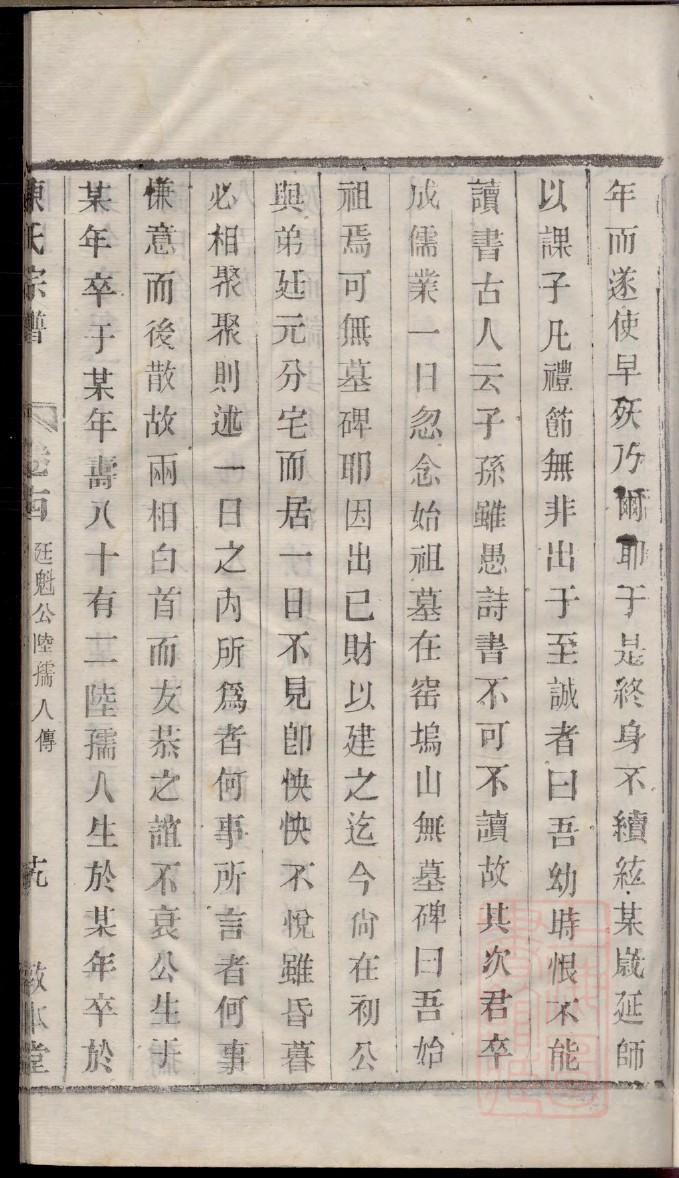 年而遂使早殀乃爾耶于是終身不續絃某歲延師
以課子凡禮節無非出于至誠者曰吾幼時恨不能
讀書古人云子孫雖愚詩書不可不讀故其次君卒
成儒業一日忽念始祖墓在窑塢山無墓碑曰吾始
祖焉可無墓碑耶因出己財以建之迄今尙在初公
與弟廷元分宅而居一日不見卽怏怏不悅雖昏暮
必相聚聚則述一日之內所爲者何事所言者何事
慊意而後散故兩相白首而友恭之誼不衰公生于
某年卒于某年壽八十有二陸孺人生於某年卒於
陳氏宗譜 廷魁公陸孺人傳 敬本堂